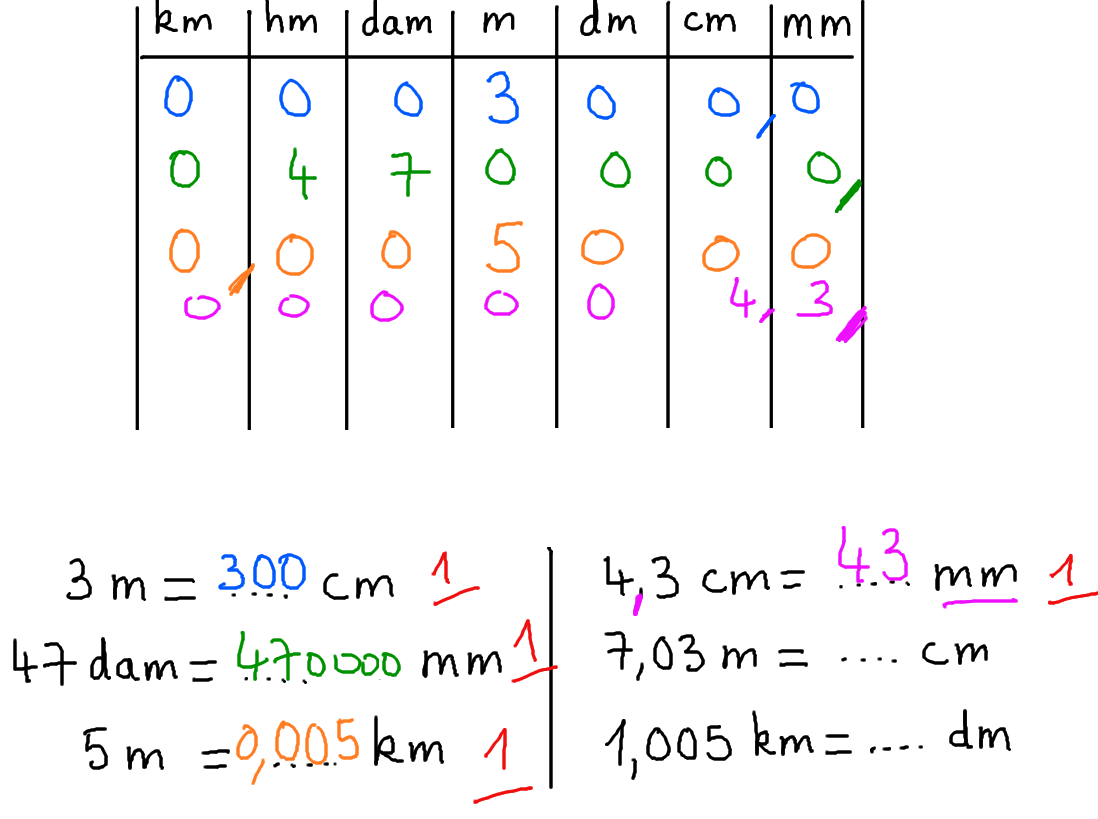 km hm dam m dm cm mm
0 0 0 3 0 0, 0
0 4 7 0 0 0 0,
0, 0 0 5 0 0 0
0 0 0 0 0 4, 3,
3 m = 300 cm 1
47 dam = 470000 mm 1
5 m = 0,005 km 1
4,3 cm = 43 mm 1
7,03 m = .... cm
1,005 km = .... dm